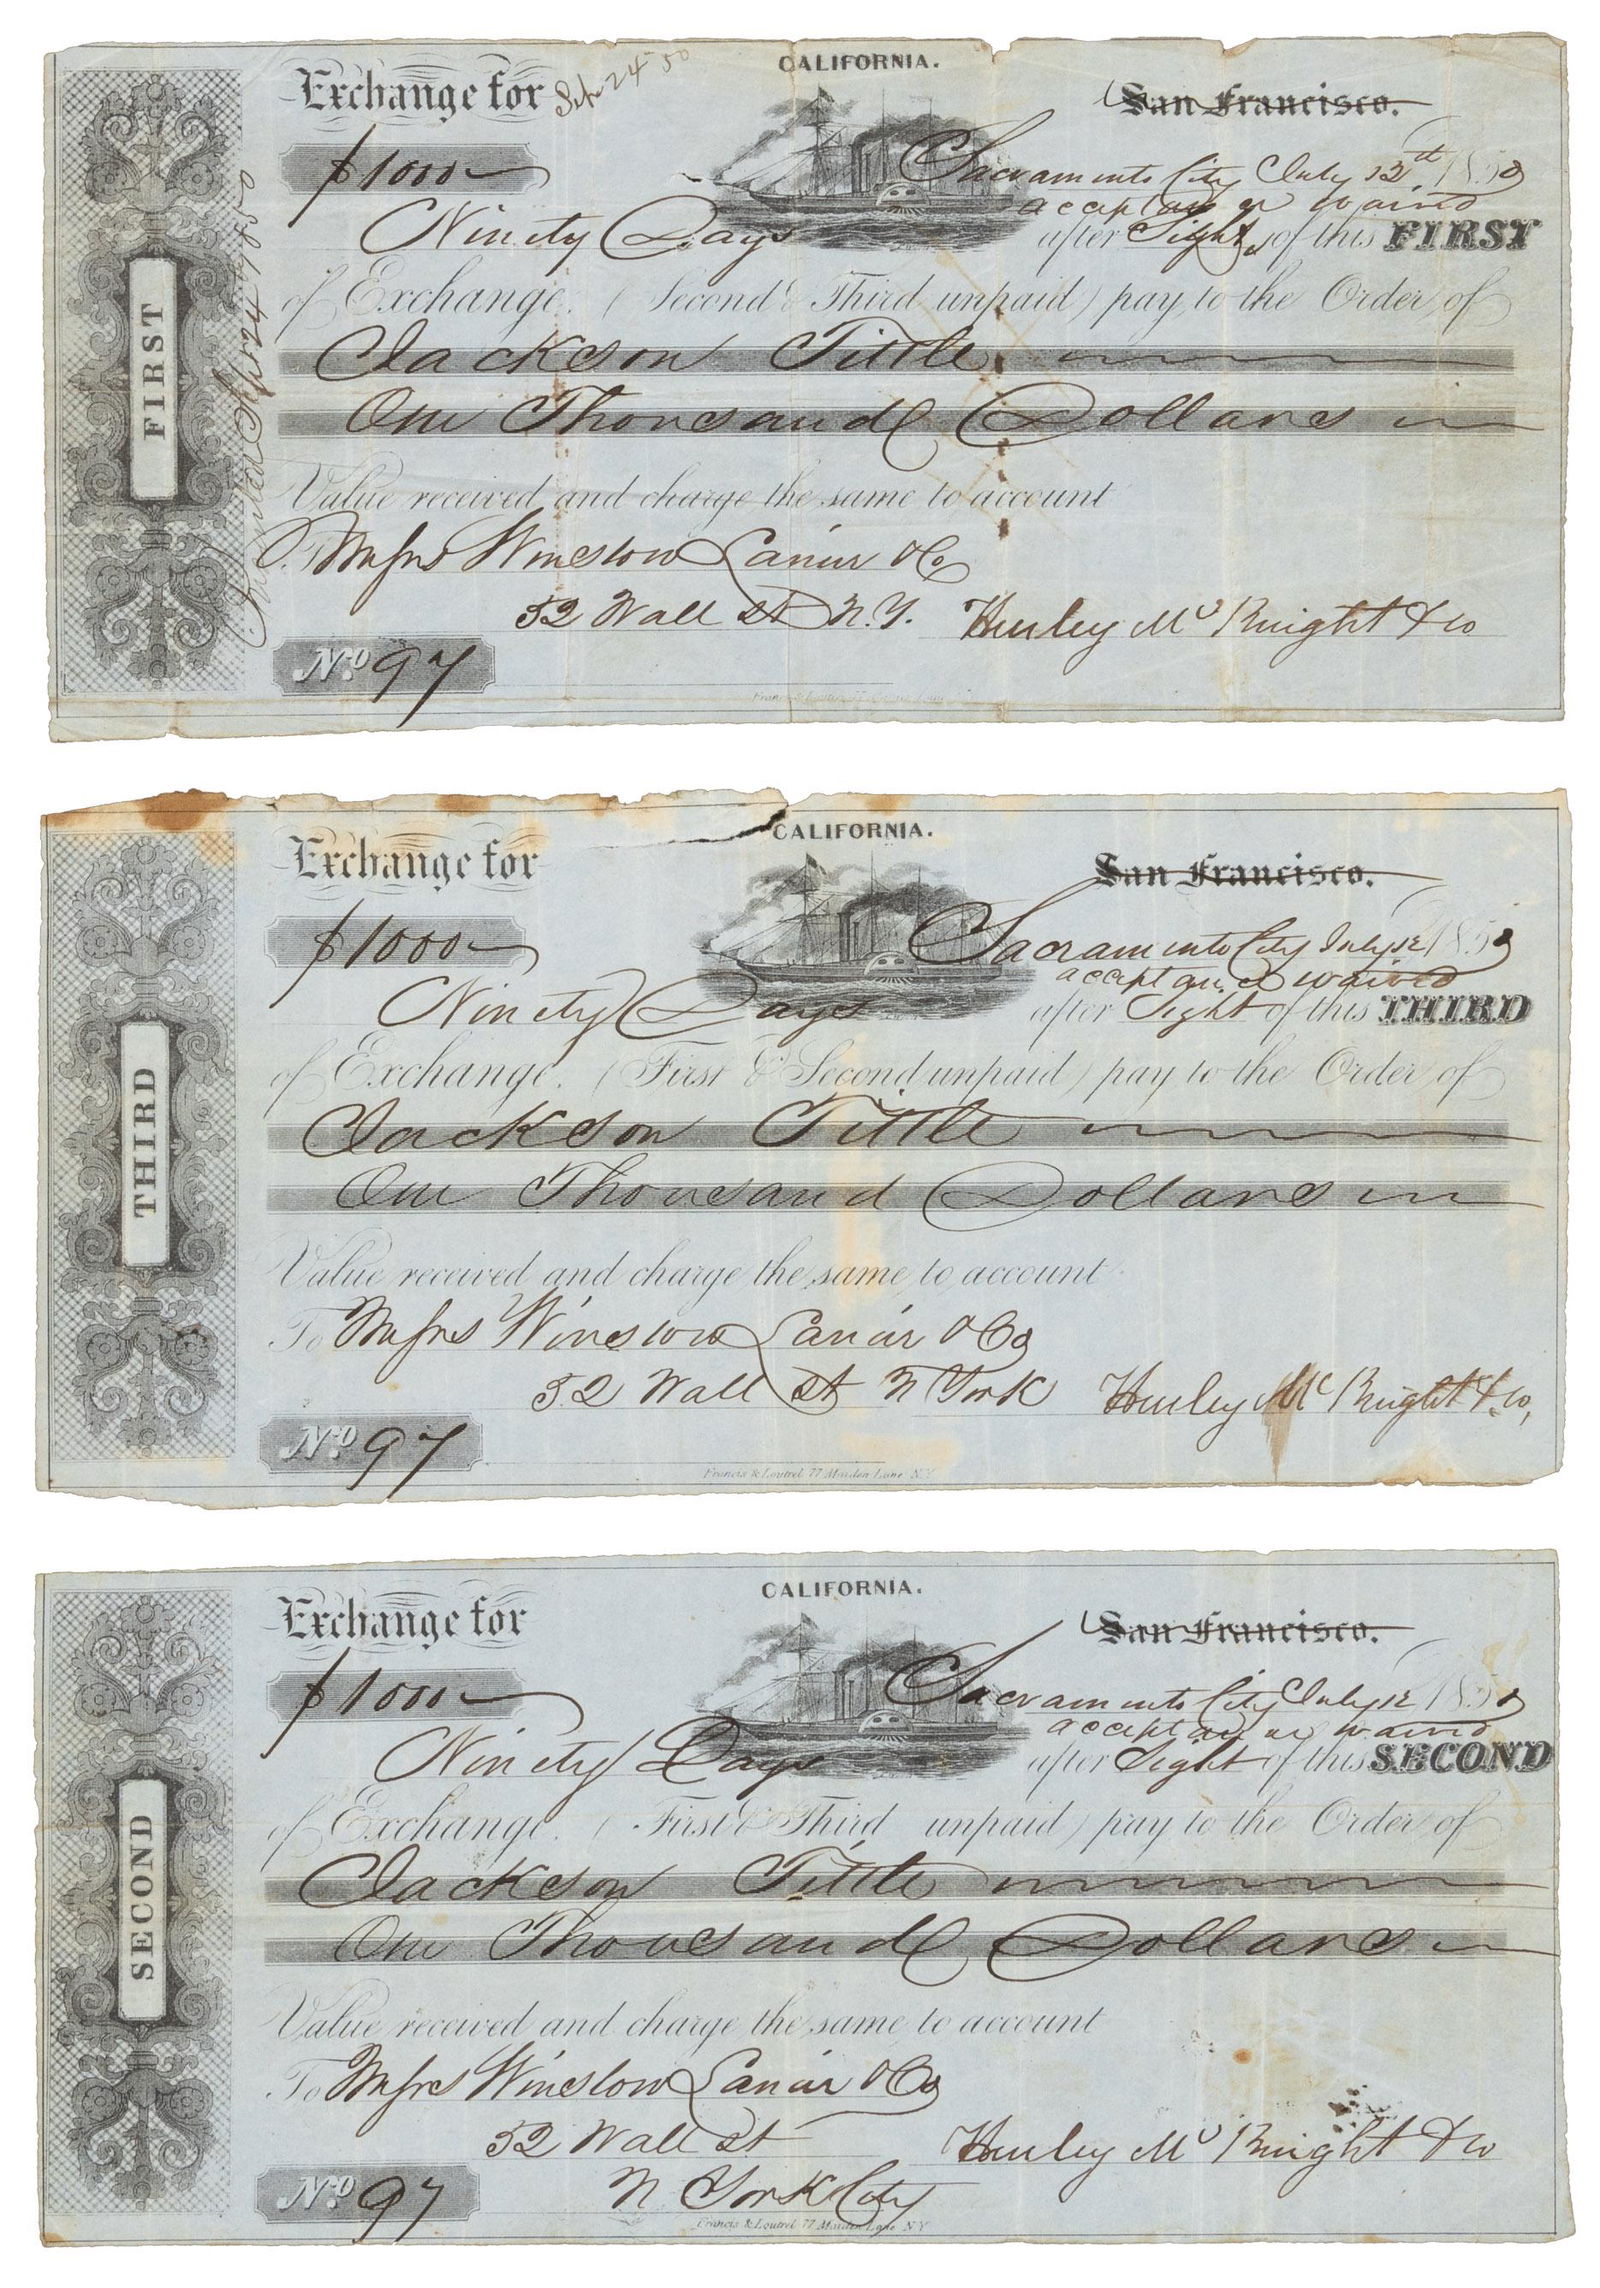 CALIFORNIA.
Exchange for Sept 24 50
San Francisco.
$1000
Sacramento City July 12th 1850
acceptance waived
Ninety Days after Sight, of this FIRST
of Exchange. (Second & Third unpaid) pay to the Order of
Jackson Tittle
One Thousand Dollars
Value received and charge the same to account
To Messrs Winslow Lanier & Co
52 Wall St N.Y. Hurley McKnight & Co
No 97
Francis & Loutrel 77 Maiden Lane
FIRST
Sept 24 1850
CALIFORNIA.
Exchange for
San Francisco.
$1000
Sacramento City July 12 1850
acceptance waived
Ninety Days after Sight of this THIRD
of Exchange. (First & Second unpaid) pay to the Order of
Jackson Tittle
One Thousand Dollars
Value received and charge the same to account
To Messrs Winslow Lanier & Co
52 Wall St N York Hurley McKnight & Co,
No 97
Francis & Loutrel 77 Maiden Lane N.Y.
THIRD
CALIFORNIA.
Exchange for
San Francisco.
$1000
Sacramento City July 12 1850
acceptance waived
Ninety Days after Sight of this SECOND
of Exchange. (First & Third unpaid) pay to the Order of
Jackson Tittle
One Thousand Dollars
Value received and charge the same to account
To Messrs Winslow Lanier & Co
52 Wall St Hurley McKnight & Co
No 97 N York City
Francis & Loutrel 77 Maiden Lane N.Y.
SECOND